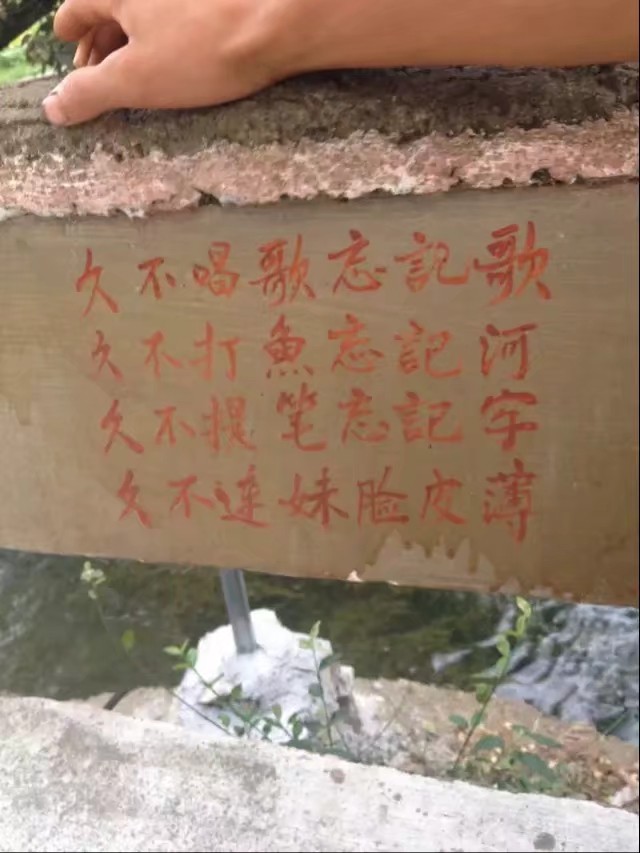 久不唱歌忘記歌
久不打魚忘記河
久不提笔忘記字
久不连妹脸皮薄